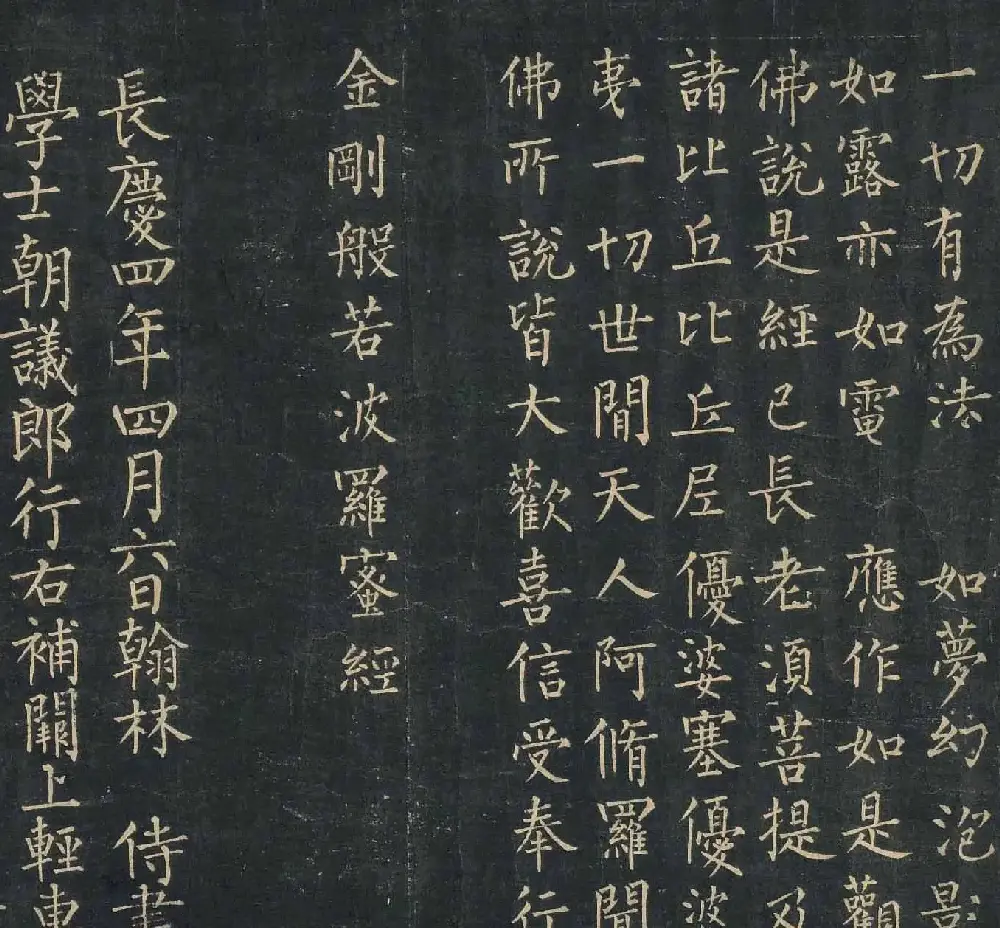 一切有為法　如夢幻泡影
如露亦如電　應作如是觀
佛說是經已長老須菩提及
諸比丘比丘尼優婆塞優波
夷一切世間天人阿脩羅聞
佛所說皆大歡喜信受奉行
金剛般若波羅蜜經
長慶四年四月六日翰林　侍書
學士朝議郎行右補闕上輕車